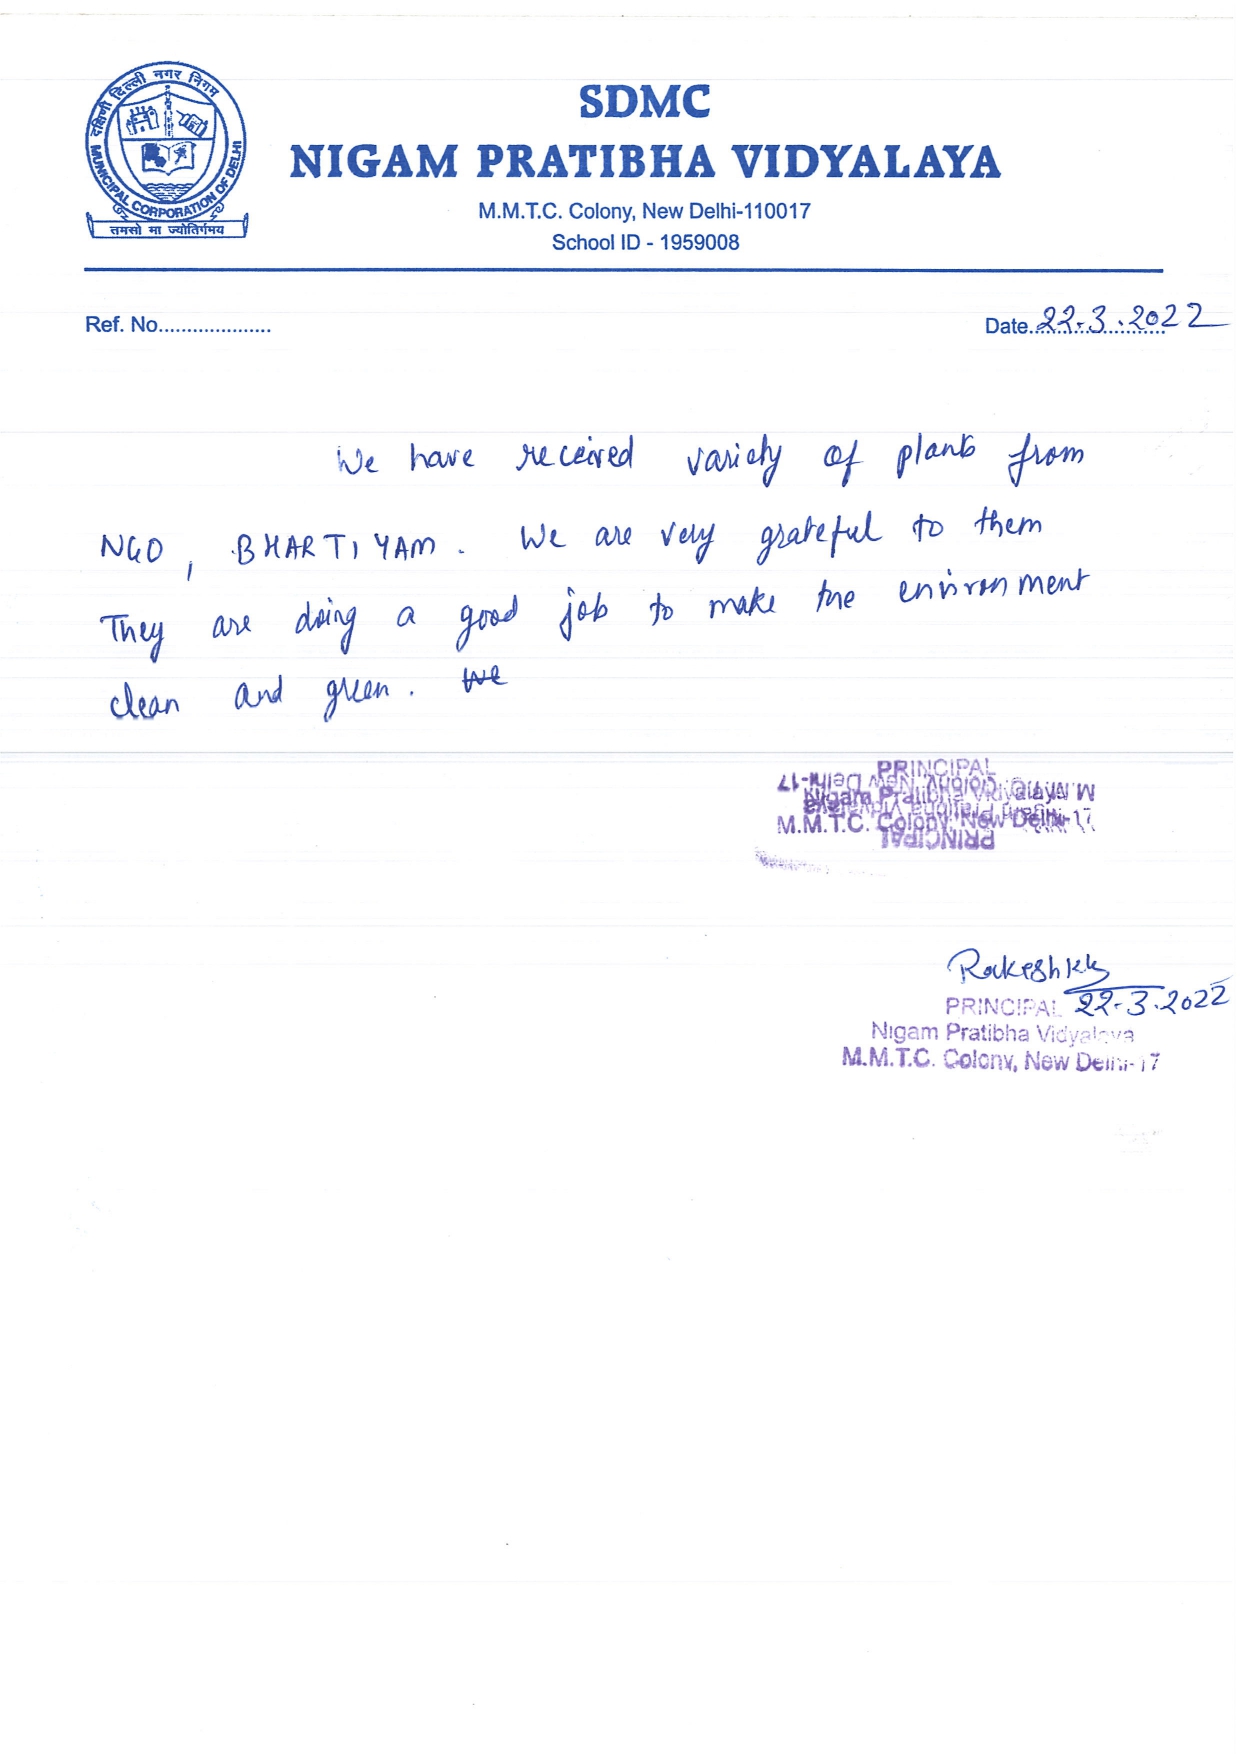 दक्षिणी दिल्ली नगर निगम
MUNICIPAL CORPORATION OF DELHI
तमसो मा ज्योतिर्गमय
SDMC
NIGAM PRATIBHA VIDYALAYA
M.M.T.C. Colony, New Delhi-110017
School ID - 1959008
Ref. No....................
Date 22.3.2022
We have received variety of plants from
NGO, BHARTIYAM. We are very grateful to them
They are doing a good job to make the environment
clean and green. We
PRINCIPAL
Nigam Pratibha Vidyalaya
M.M.T.C. Colony, New Delhi-17
PRINCIPAL
Nigam Pratibha Vidyalaya
M.M.T.C. Colony, New Delhi-17
Rakesh
PRINCIPAL 22.3.2022
Nigam Pratibha Vidyalaya
M.M.T.C. Colony, New Delhi-17